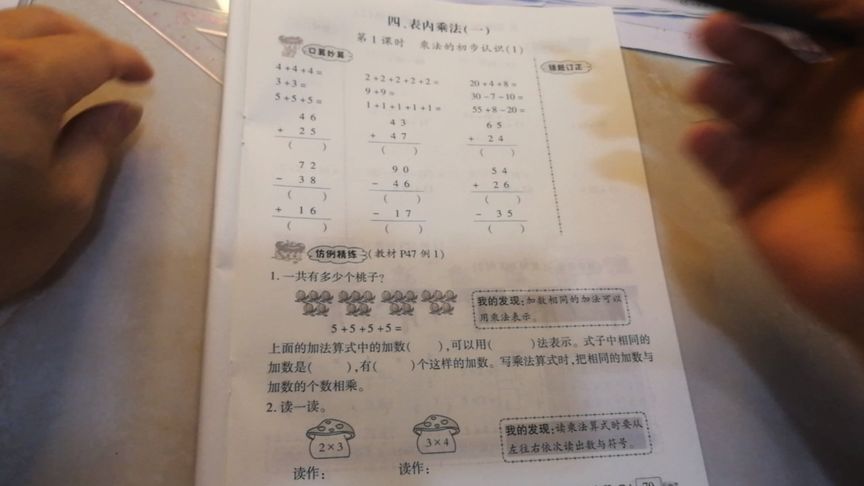 四、表内乘法(一)
第1课时 乘法的初步认识(1)
口算妙算
错题订正
4+4+4= 2+2+2+2+2= 20+4+8=
3+3= 9+9= 30-7-10=
5+5+5= 1+1+1+1+1= 55+8-20=
46 43 65
+ 25 + 47 + 24
( ) ( ) ( )
72 90 54
- 38 - 46 + 26
( ) ( ) ( )
+ 16 - 17 - 35
( ) ( ) ( )
仿例精练 (教材P47例1)
1.一共有多少个桃子?
5+5+5+5=
我的发现:加数相同的加法可以
用乘法表示。
上面的加法算式中的加数( ),可以用( )法表示。式子中相同的
加数是( ),有( )个这样的加数。写乘法算式时,把相同的加数与
加数的个数相乘。
2.读一读。
2×3 3×4
读作: 读作:
我的发现:读乘法算式时要从
左往右依次读出数与符号。